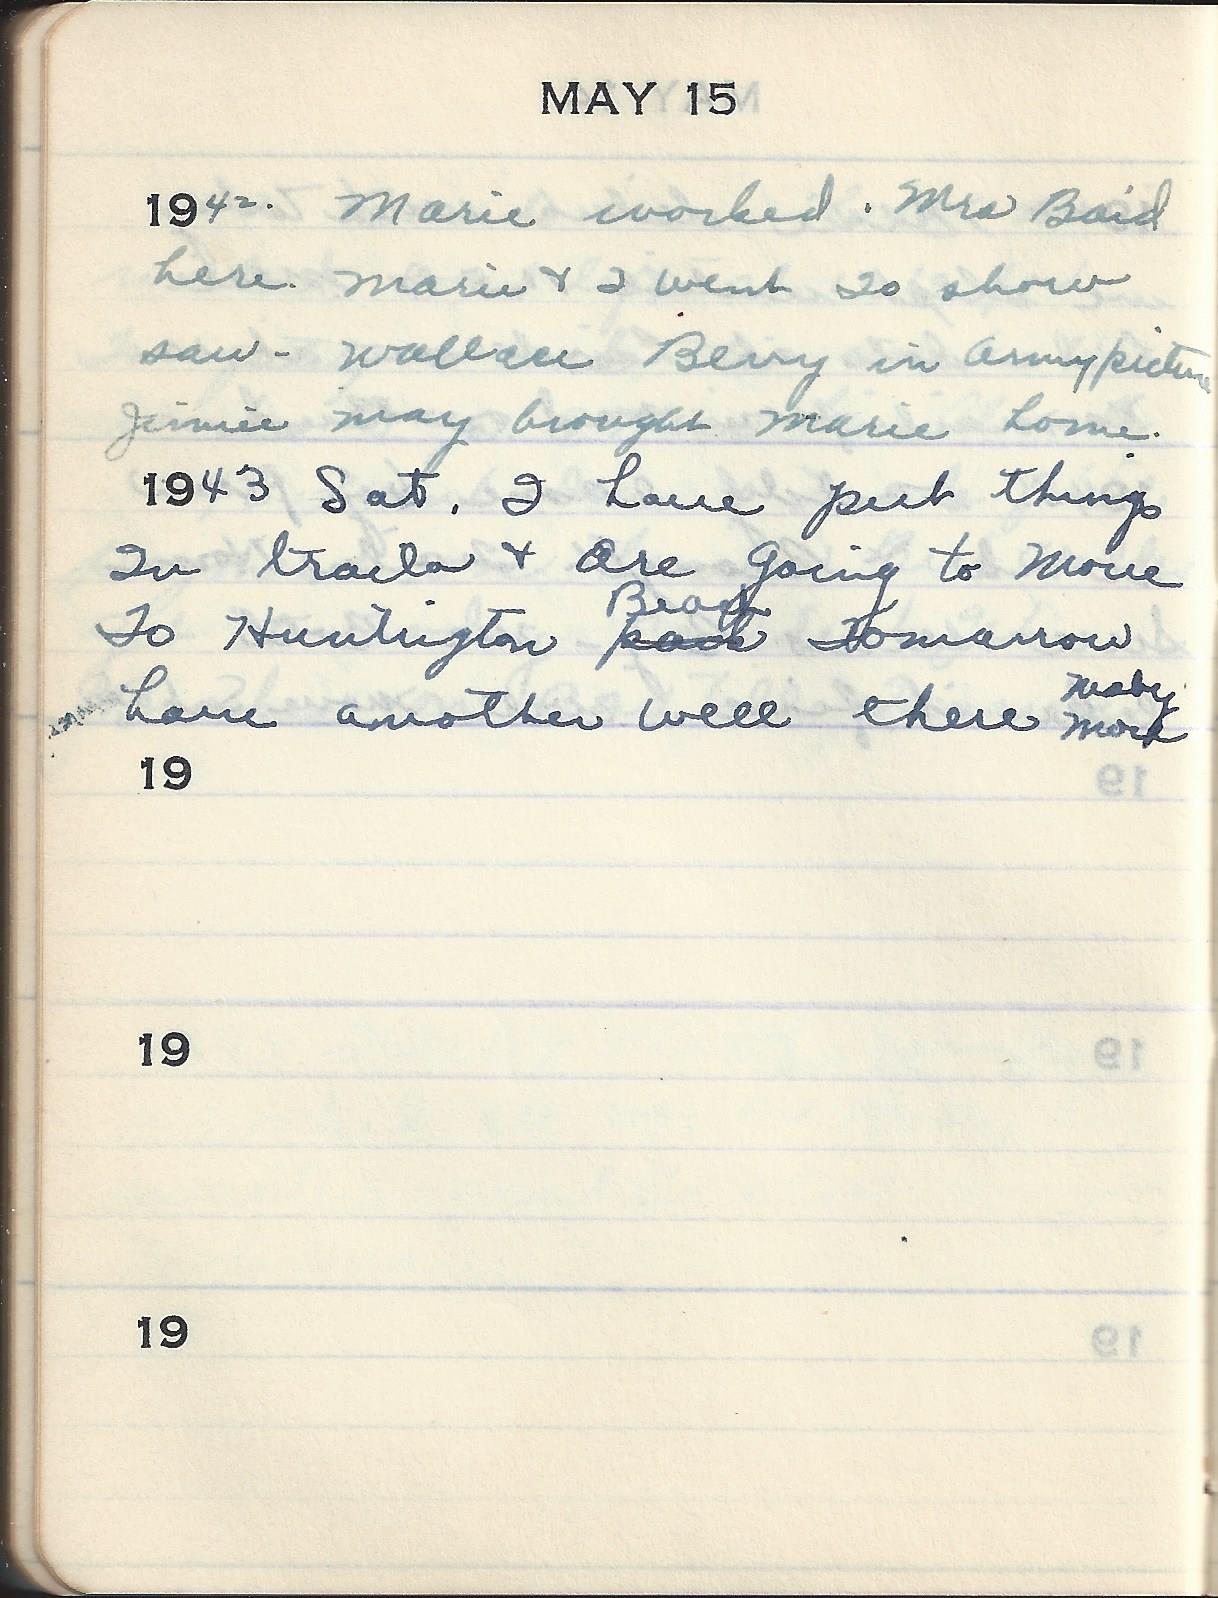 MAY 15
1942. Marie worked. Mrs Baid
here. Marie & I went to show
saw - Wallace Beery in Army picture
Jimmie May brought Marie home.
1943 Sat. I have put things
In traila & are going to Move
To Huntington Beach park Tomarrow
have another well there Maby
More
19
19
19